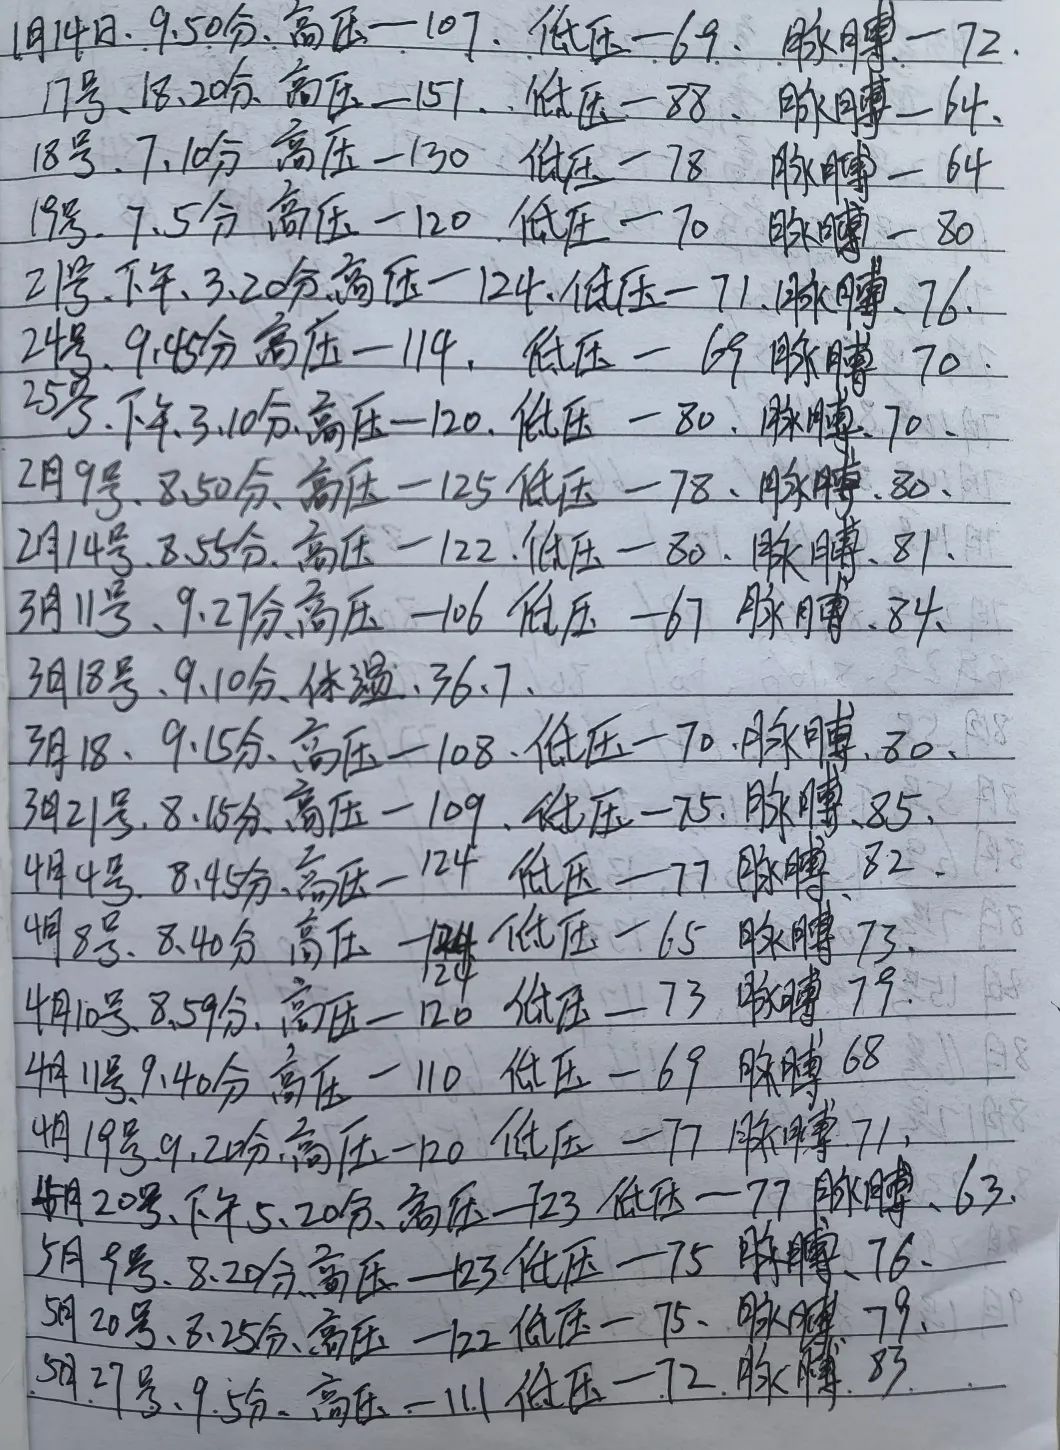 1月14日、9.50分、高压—107、低压—69、脉膊—72.
17号、18、20分、高压—151、低压—88、脉膊—64、
18号、7、10分 高压—130 低压—78 脉膊—64
19号、7、5分 高压—120 低压—70 脉膊—80
21号、下午、3、20分、高压—124、低压—71、脉膊、76.
24号、9.45分 高压—114、低压—69 脉膊 70.
25号、下午、3、10分、高压—120、低压—80、脉膊、70、
2月9号、8.50分、高压—125 低压—78、脉膊、80、
2月14号、8.55分、高压—122、低压—80、脉膊、81、
3月11号、9.27分、高压—106 低压—67 脉膊、84、
3月18号、9.10分、体温、36.7.
3月18、9.15分、高压—108、低压—70、脉膊、80、
3月21号、8.15分、高压—109、低压—75、脉膊、85、
4月4号、8.45分、高压—124 低压—77 脉膊、82、
4月8号、8.40分 高压— 低压—65 脉膊 73、
124
4月10号、8.59分、高压—120 低压—73 脉膊 79、
4月11号、9.40分 高压—110 低压—69 脉膊 68
4月19号、9.20分、高压—120 低压—77 脉膊、71、
月20号、下午5、20分、高压—123 低压—77 脉膊、63、
5月9号、8.20分、高压—123 低压—75 脉膊、76、
5月20号、8.25分、高压—122 低压—75、脉膊、79、
5月27号、9.5分、高压—111 低压—72、脉膊、83